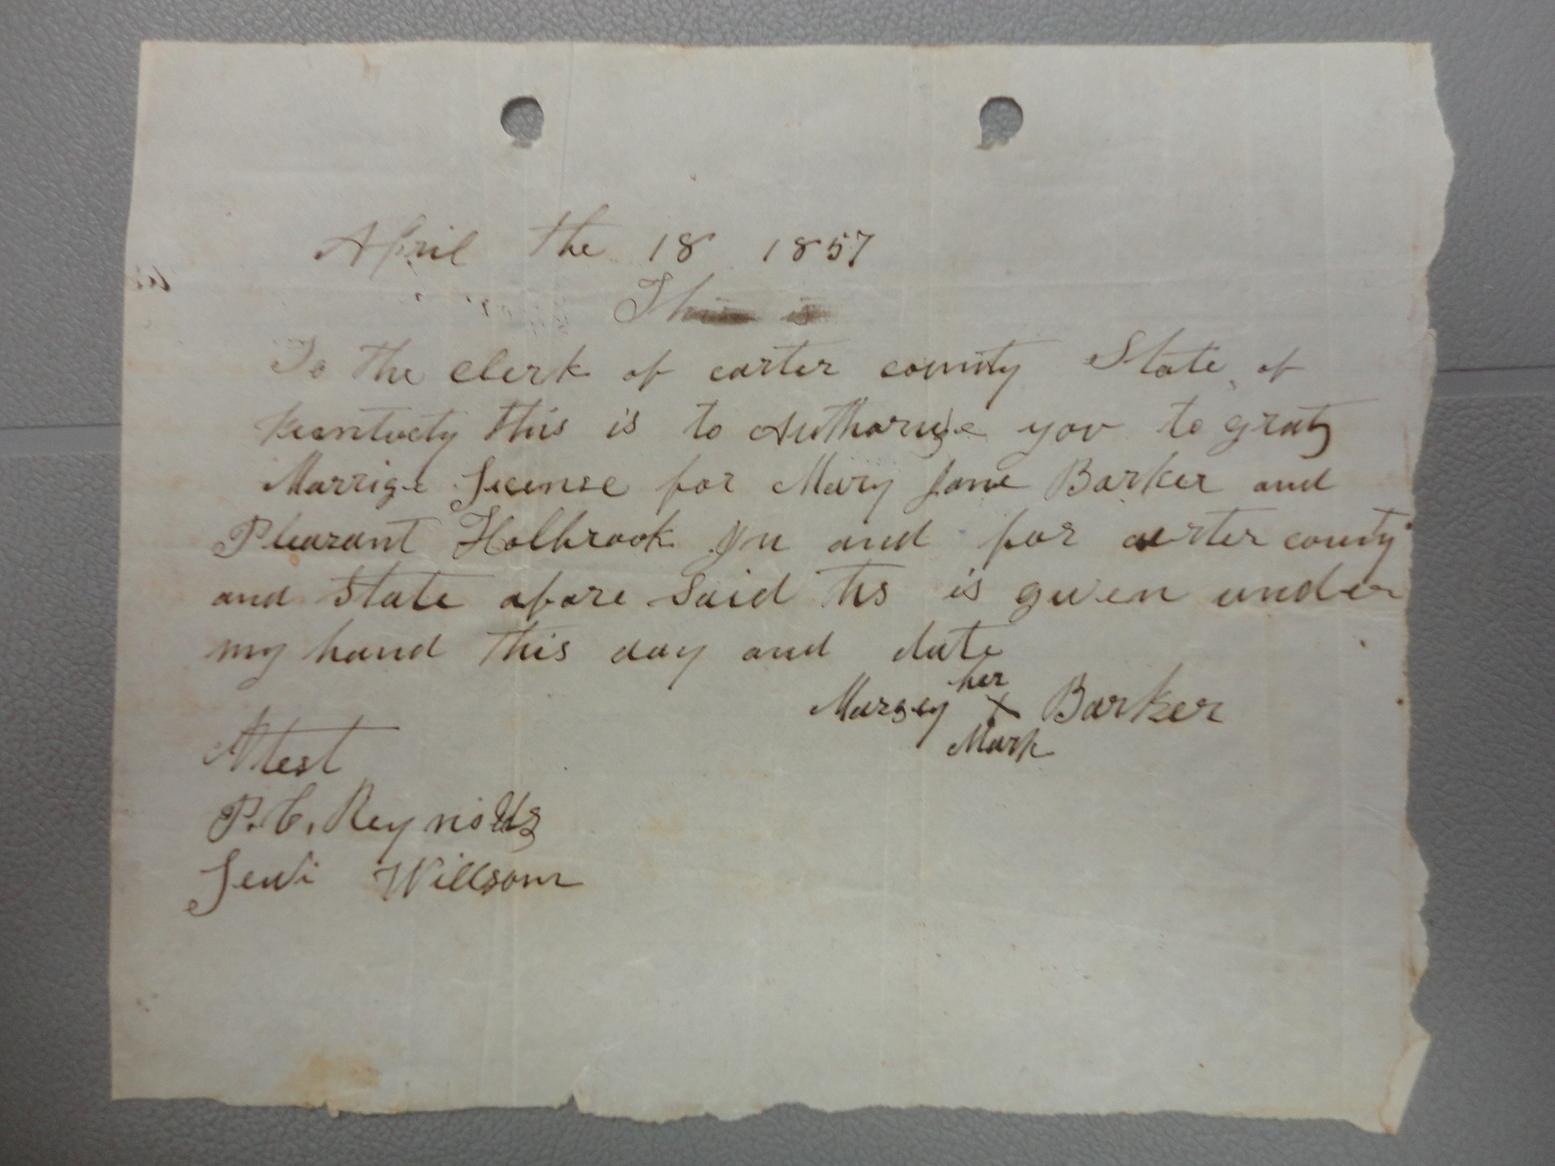 April the 18 1857
This is
To the clerk of carter county State of
kentucty this is to Authorize you to grat
Marrige License for Mary Jane Barker and
Pleazant Holbrook Jn and for carter county
and State afore Said ths is given under
my hand this day and date
her
Marsey X Barker
Mark
Atest
P. C. Reynolds
Levi Willsom